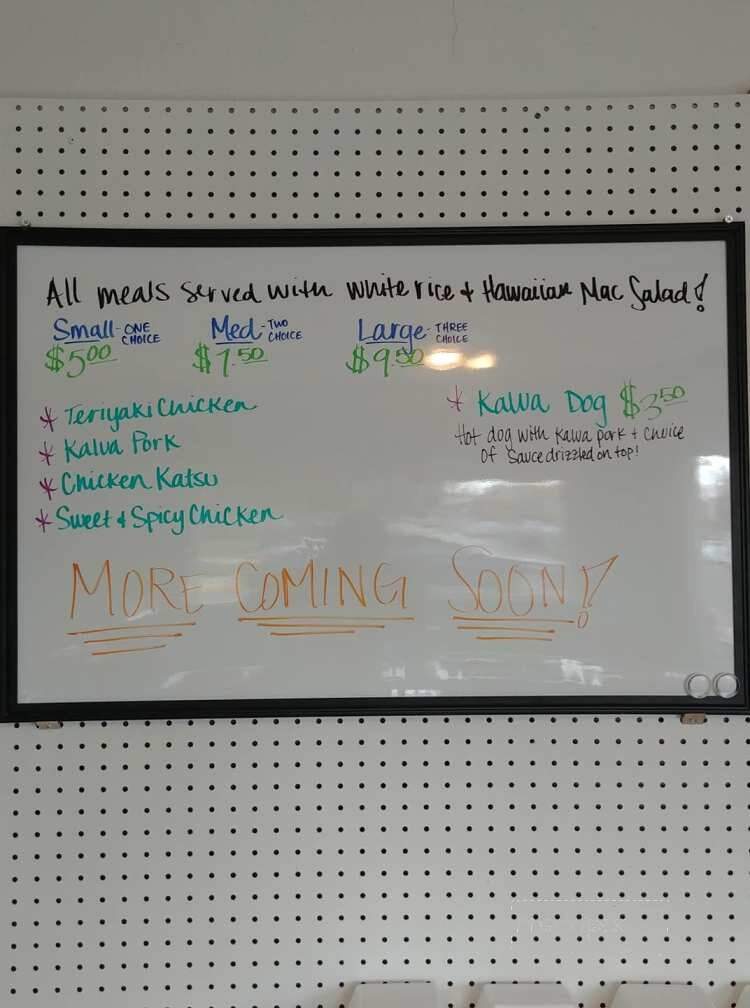 All meals served with white rice + Hawaiian Mac Salad!
Small - ONE CHOICE Med - TWO CHOICE Large - THREE CHOICE
$5.00 $7.50 $9.50
* Teriyaki Chicken
* Kalua Pork
* Chicken Katsu
* Sweet & Spicy Chicken
* Kalua Dog $3.50
Hot dog with Kalua pork + choice
of sauce drizzled on top!
MORE COMING SOON!